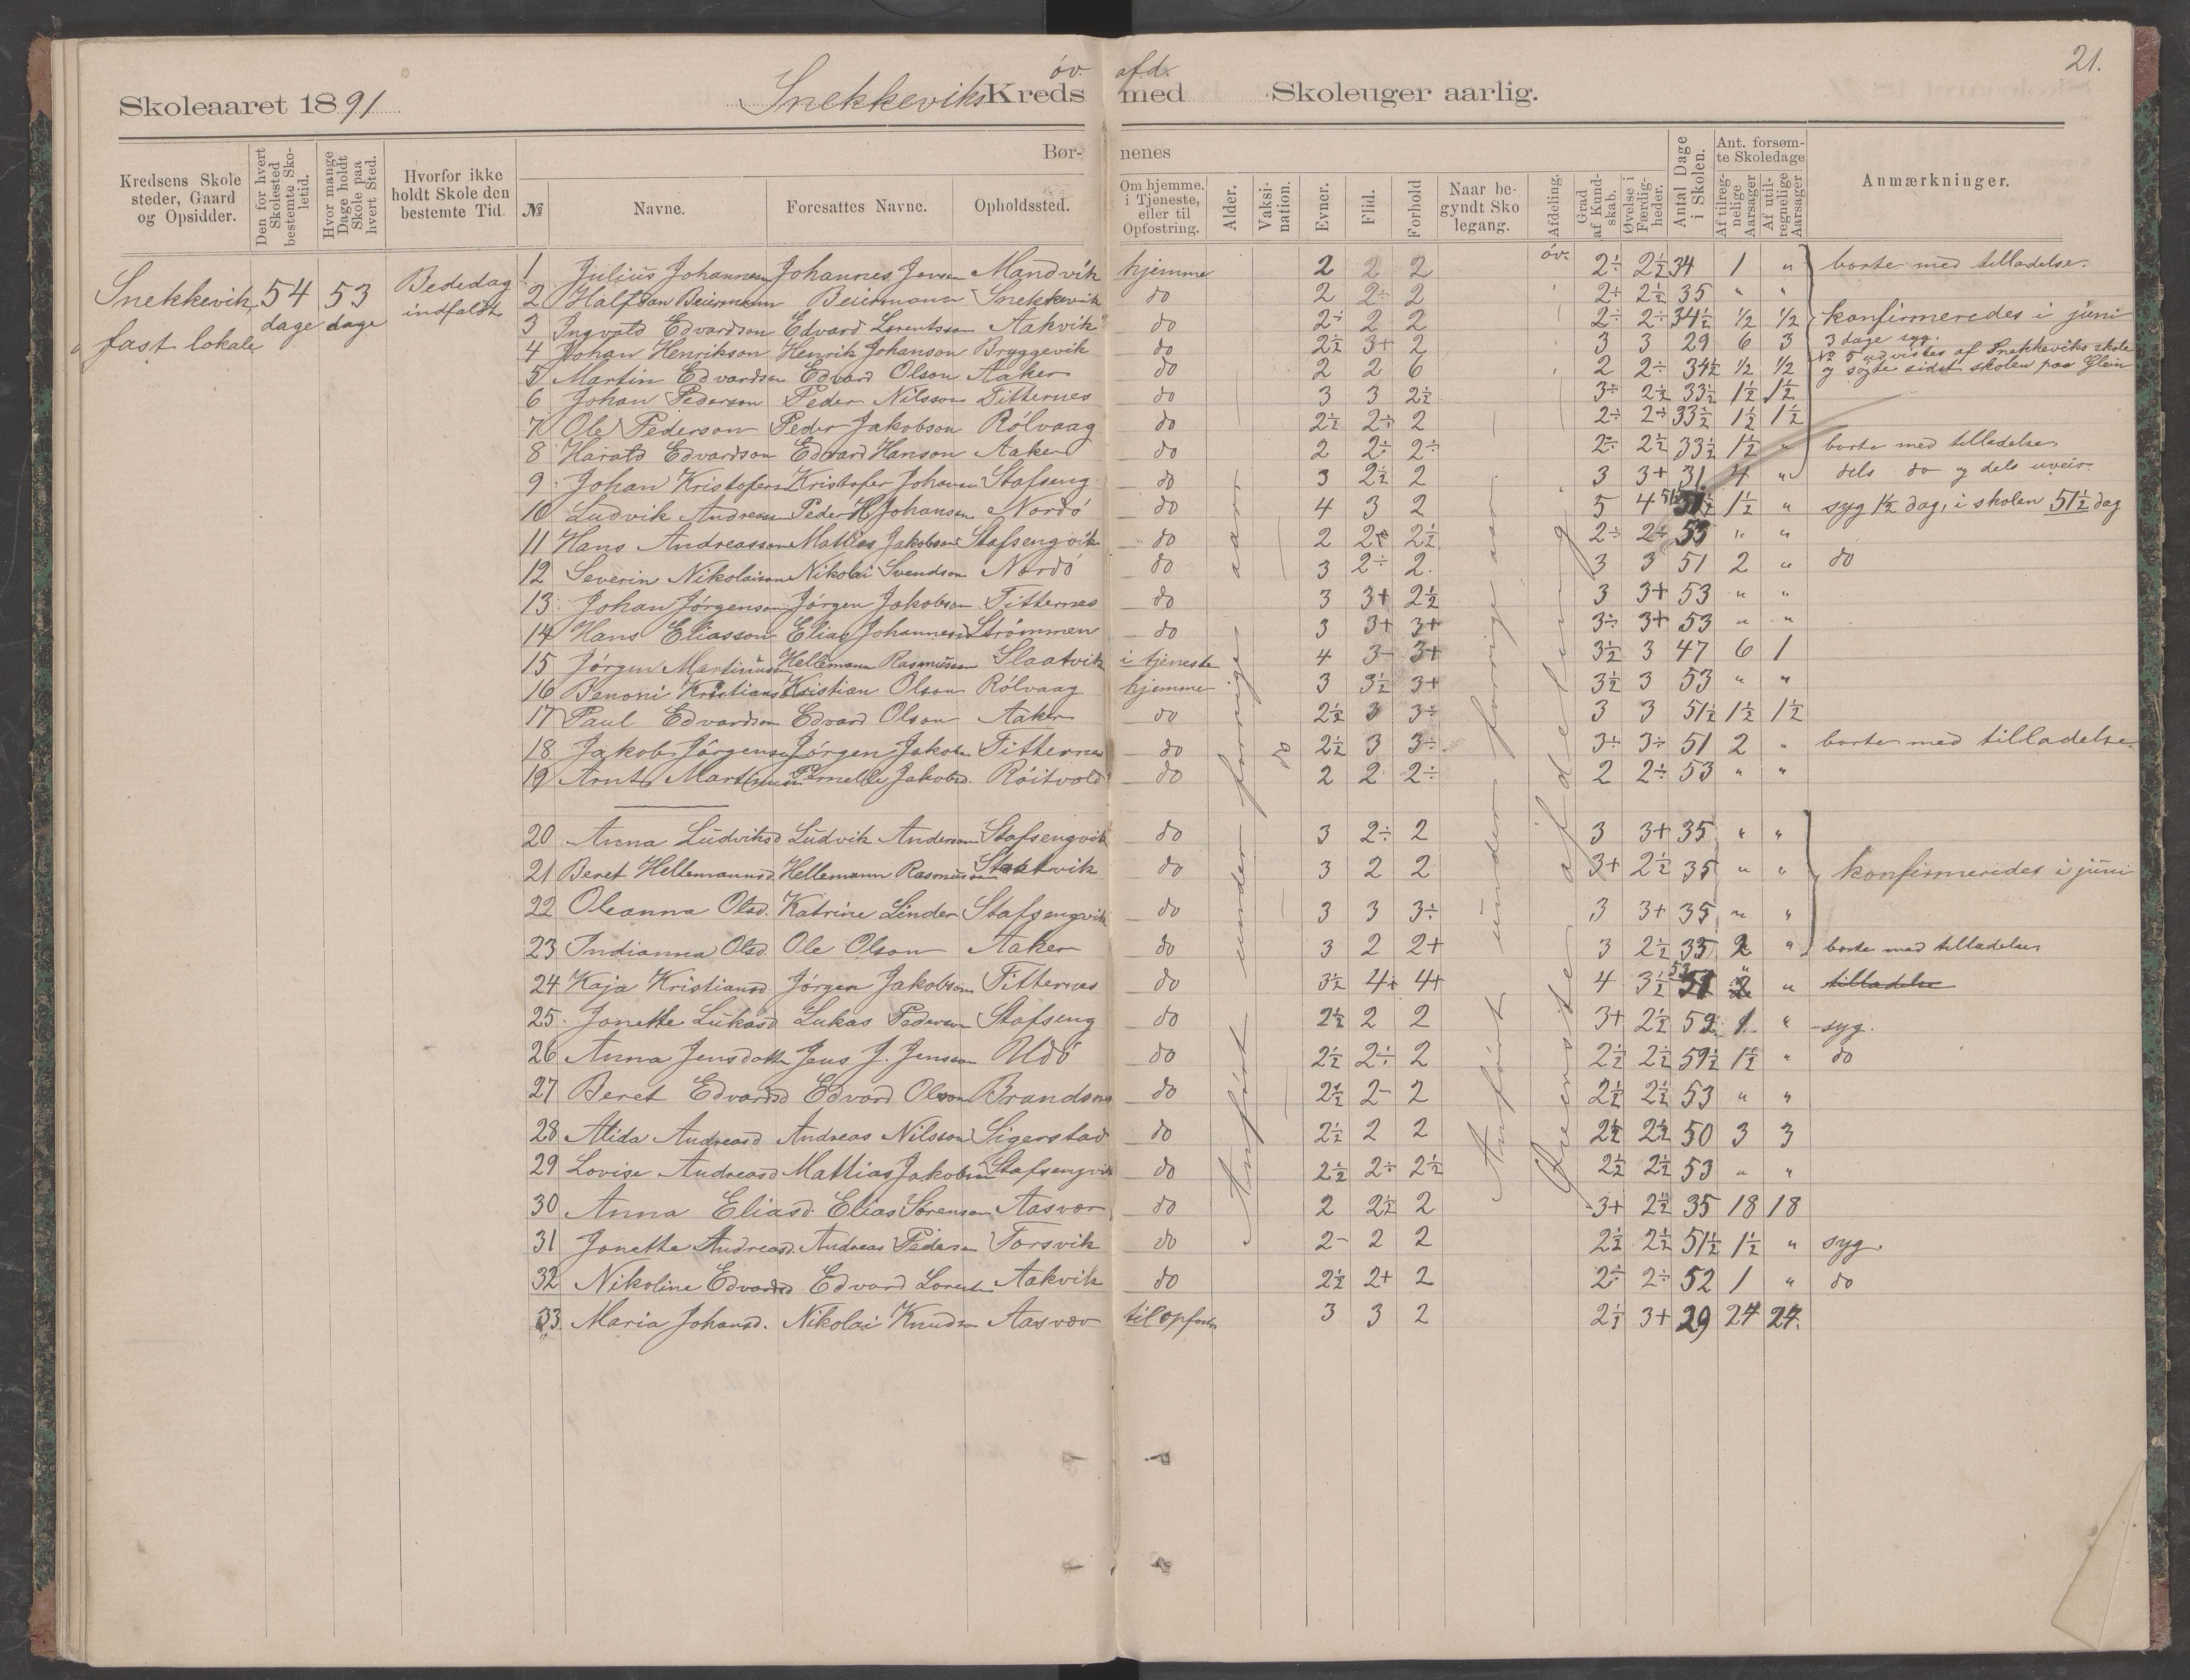 21.
öv. afd.
Skoleaaret 1891 Snekkeviks Kreds med Skoleuger aarlig.
Børnenes
Kredsens Skolesteder, Gaard og Opsidder. Den for hvert Skolested bestemte Skoletid. Hvor mange Dage holdt Skole paa hvert Sted. Hvorfor ikke holdt Skole den bestemte Tid. № Navne. Foresattes Navne. Opholdssted. Om hjemme, i Tjeneste, eiler til Opfostring. Alder. Vaksination. Evner. Flid. Forhold Naar begyndt Skolegang. Afdeling. Grad af Kundskab. Øvelse i Færdigheder. Antal Dage i Skolen. Ant. forsømte Skoledage Af tilregnelige Aarsager Af utilregnelige Aarsager Anmærkninger.
Snekkevik, fast lokale 54 dage 53 dage Bededag indfaldt
1 Julius Johannesen Johannes Jonsen Mandvik hjemme 2 2 2 öv. 2÷ 2½ 34 1 " borte med tilladelse.
2 Halfdan Beiermann Beiermann Snekkevik do 2 2÷ 2 2÷ 2½ 35 " "
3 Ingvald Edvardson Edvard Lorentsson Aakvik do 2÷ 2 2 2÷ 2÷ 34½ ½ ½ konfirmeredes i juni
4 Johan Henrikson Henrik Johanson Bryggevik do 2½ 3+ 2 3 3 29 6 3 3 dage syg.
5 Martin Edvardson Edvard Olson Aaker do 2 2 6 2 2÷ 34½ ½ ½ № 5 udvistes af Snekkeviks skole og søgte sidst skolen paa Glein
6 Johan Pederson Peder Nilsson Titternes do 3 3 2½ 3÷ 2½ 33½ 1½ 1½
7 Ole Pederson Peder Jakobson Rölvaag do 2½ 2÷ 2 2÷ 2÷ 33½ 1½ 1½
8 Harald Edvardson Edvard Hanson Aaker do 2 2÷ 2÷ 2÷ 2½ 33½ 1½ " borte med tilladelse
9 Johan Kristofersen Kristofer Johansen Stafseng do 3 2½ 2 3 3+ 31 4 " dels do og dels uveir.
10 Ludvik Andreasen Peder H Johansen Nordö do 4 3 2 5 4 51½ 1½ " syg 1½ dag, i skolen 51½ dag
11 Hans Andreasson Mattias Jakobsen Stafsengvik do 2 2 2½ 2÷ 2÷ 53 " "
12 Severin Nikolaison Nikolai Svendson Nordö do 3 2÷ 2. 3 3 51 2 " do
13 Johan Jörgensen Jörgen Jakobson Titternes do 3 3+ 2½ 3 3+ 53 " "
14 Hans Eliasson Elias Johannesen Strömmen do 3 3+ 3+ 3÷ 3+ 53 " "
15 Jörgen Martinusen Hellemann Rasmusson Slaatvik i tjeneste 4 3- 3+ 3½ 3 47 6 1
16 Benoni Kristians Kristian Olson Rölvaag hjemme 3 3½ 3+ 3½ 3 53 " "
17 Paul Edvardson Edvard Olson Aaker do 2½ 3 3÷ 3 3 51½ 1½ 1½
18 Jakob Jörgensen Jörgen Jakobsen Titternes do do 2½ 3 3÷ 3÷ 3÷ 51 2 " borte med tilladelse
19 Arnt Martinusen Pernelle Jakobsd. Röitvold do 2 2 2÷ 2 2÷ 53 " "
20 Anna Ludviksd Ludvik Anderson Stafsengvik do 3 2÷ 2 3 3+ 35 " "
21 Beret Hellemannsd. Hellemann Rasmusson Slaatvik do 3 2 2 3+ 2½ 35 " " konfirmerides i juni
22 Oleanna Olsd. Katrine Linder Stafsengvik do 3 3 3÷ 3 3+ 35 " "
23 Indianna Olsd. Ole Olson Aaker do 3 2 2+ 3 2½ 33 2 " borte med tilladelse
24 Kaja Kristiansd. Jörgen Jakobsen Titternes do 3½ 4+ 4+ 4 3½ 53 " " tilladelse
25 Jonette Lukasd Lukas Pederson Stafseng do 2½ 2 2 3+ 2½ 52 1 " syg.
26 Anna Jensdatter Jens J. Jensson Udö do 2½ 2÷ 2 2½ 2½ 51½ 1½ " do
27 Beret Edvardsd Edvard Olson Brandsnes do 2½ 2- 2 2½ 2½ 53 " "
28 Alida Andreasd Andreas Nilsson Sigerstad do 2½ 2 2 2½ 2½ 50 3 3
29 Lovise Andreasd Mattias Jakobsen Stafsengvik do 2½ 2÷ 2½ 2½ 2½ 53 " "
30 Anna Eliasd. Elias Sörenson Aasvær do 2 2½ 2 3+ 2½ 35 18 18
31 Jonette Andreasd. Andreas Pedersen Forsvik do 2- 2 2 2½ 2½ 51½ 1½ " syg.
32 Nikoline Edvardsd Edvard Lorents Aakvik do 2½ 2+ 2 2÷ 2÷ 52 1 " do
33. Maria Johansd. Nikolai Knudsen Aasvær til opfostr. 3 3 2 2½ 3+ 29 24 24.
Anfört under forrige aar
Anfört under forrige aar
Överste afdeling.